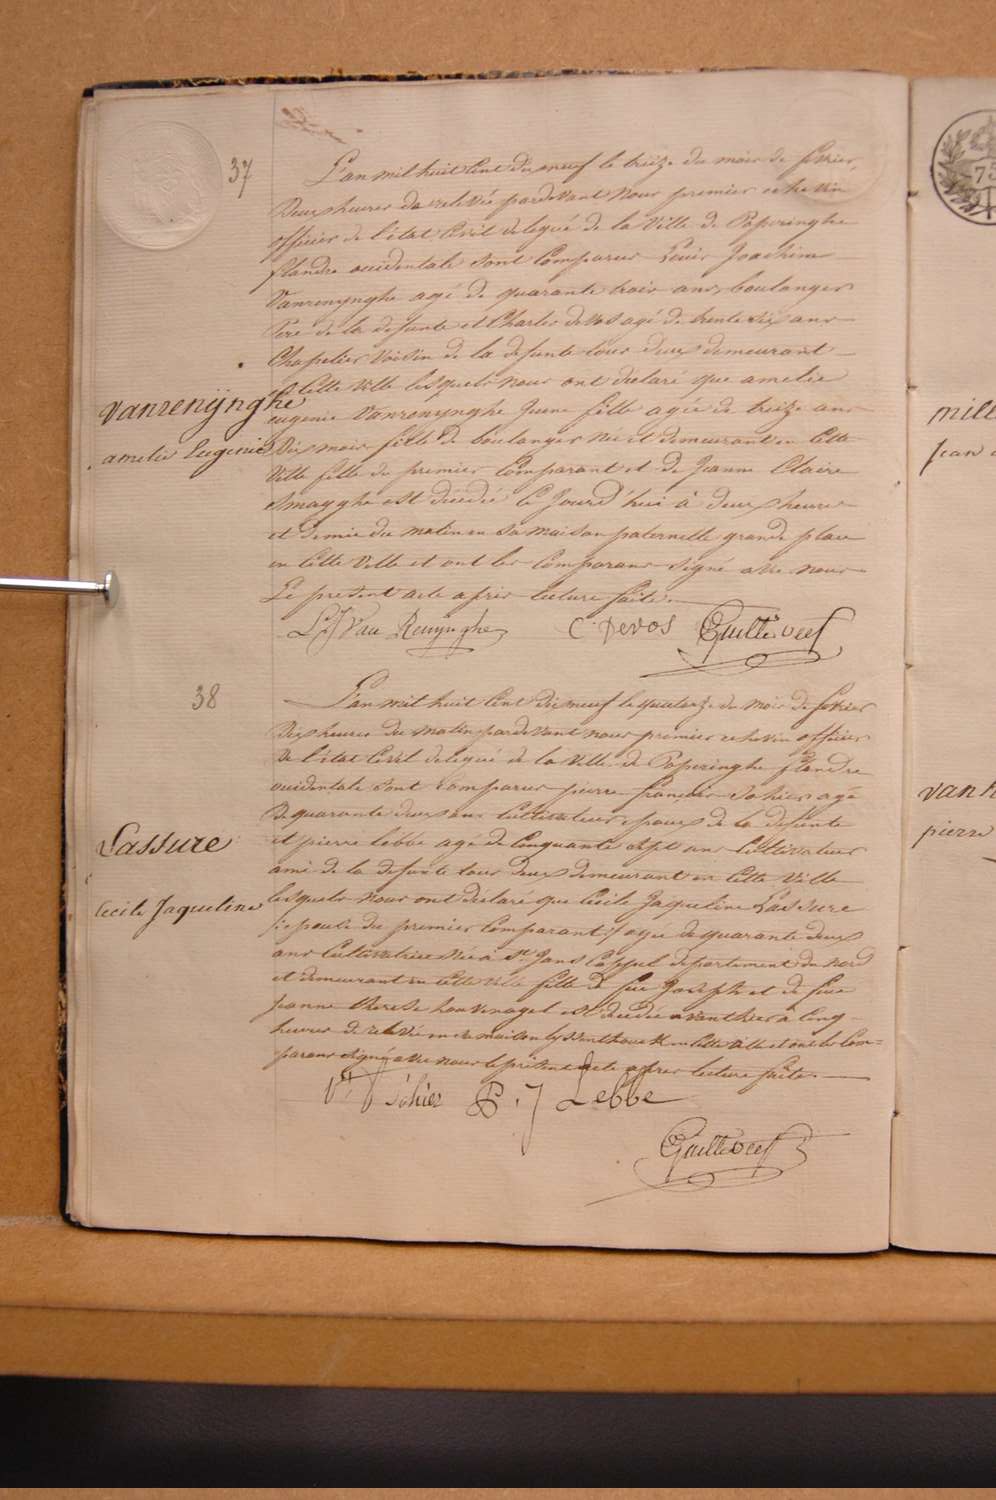 37
L'an mil huit Cent dix neuf le treize du mois de fevrier
Deux heures de relevée pardevant Nous premier echevin
officier de l'état Civil delegué de la Ville de Poperinghe
flandre occidentale sont Comparus Louis Joachim
Vanrenynghe agé de quarante trois ans, boulanger
Pere de la defunte et Charles devos agé de trente six ans
Chapelier Voisin de la defunte tous deux demeurant
en Cette Ville lesquels nous ont déclaré que amelie
eugenie Vanrenynghe Jeune fille agée de treize ans
Dix mois fille de boulanger Née et demeurant en Cette
Ville fille du premier Comparant et de Jeanne Claire
est décédée Ce Jourd'hui à deux heures
et demie du matin en sa maison paternelle grande place
en Cette Ville et ont les Comparans signé avec nous
Le present acte après lecture faite.
Vanrenÿnghe
amelie Eugenie
L J Van Renynghe C Devos
38
L'an mil huit Cent dix neuf le quatorze du mois de fevrier
Dix heures du matin pardevant nous premier echevin officier
de l'état Civil delegué de la Ville de Poperinghe flandre
occidentale sont Comparus pierre françois Sohier agé
de quarante deux ans Cultivateur epoux de la defunte
et pierre Lebbe agé de Cinquante sept ans Cultivateur
ami de la defunte tous deux demeurant en Cette Ville
lesquels nous ont déclaré que Cécile Jaqueline Lassure
epouse du premier Comparant agée de quarante deux
ans Cultivatrice Née à St Jans Cappel departement du Nord
et demeurant en Cette Ville fille de feu Joseph et de feue
Jeanne therese est décédée avanthier à Cinq
heures de relevée en sa maison en Cette Ville et ont les Com=
parans signé avec nous le présent acte après lecture faite.
Lassure
Cecile Jaqueline
Sohier P. J Lebbe
75
mill
Jean
van h
pierre